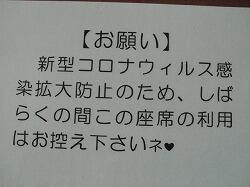 【お願い】
新型コロナウィルス感
染拡大防止のため、しば
らくの間この座席の利用
はお控え下さいネ♥